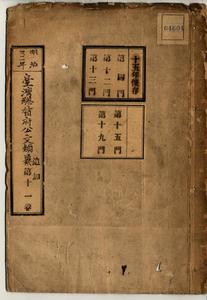 明治
三二年
臺灣總督府公文類纂
追加
第十一卷
十五年保存
第四門
第十二門
第十三門
第十五門
第十九門
04604